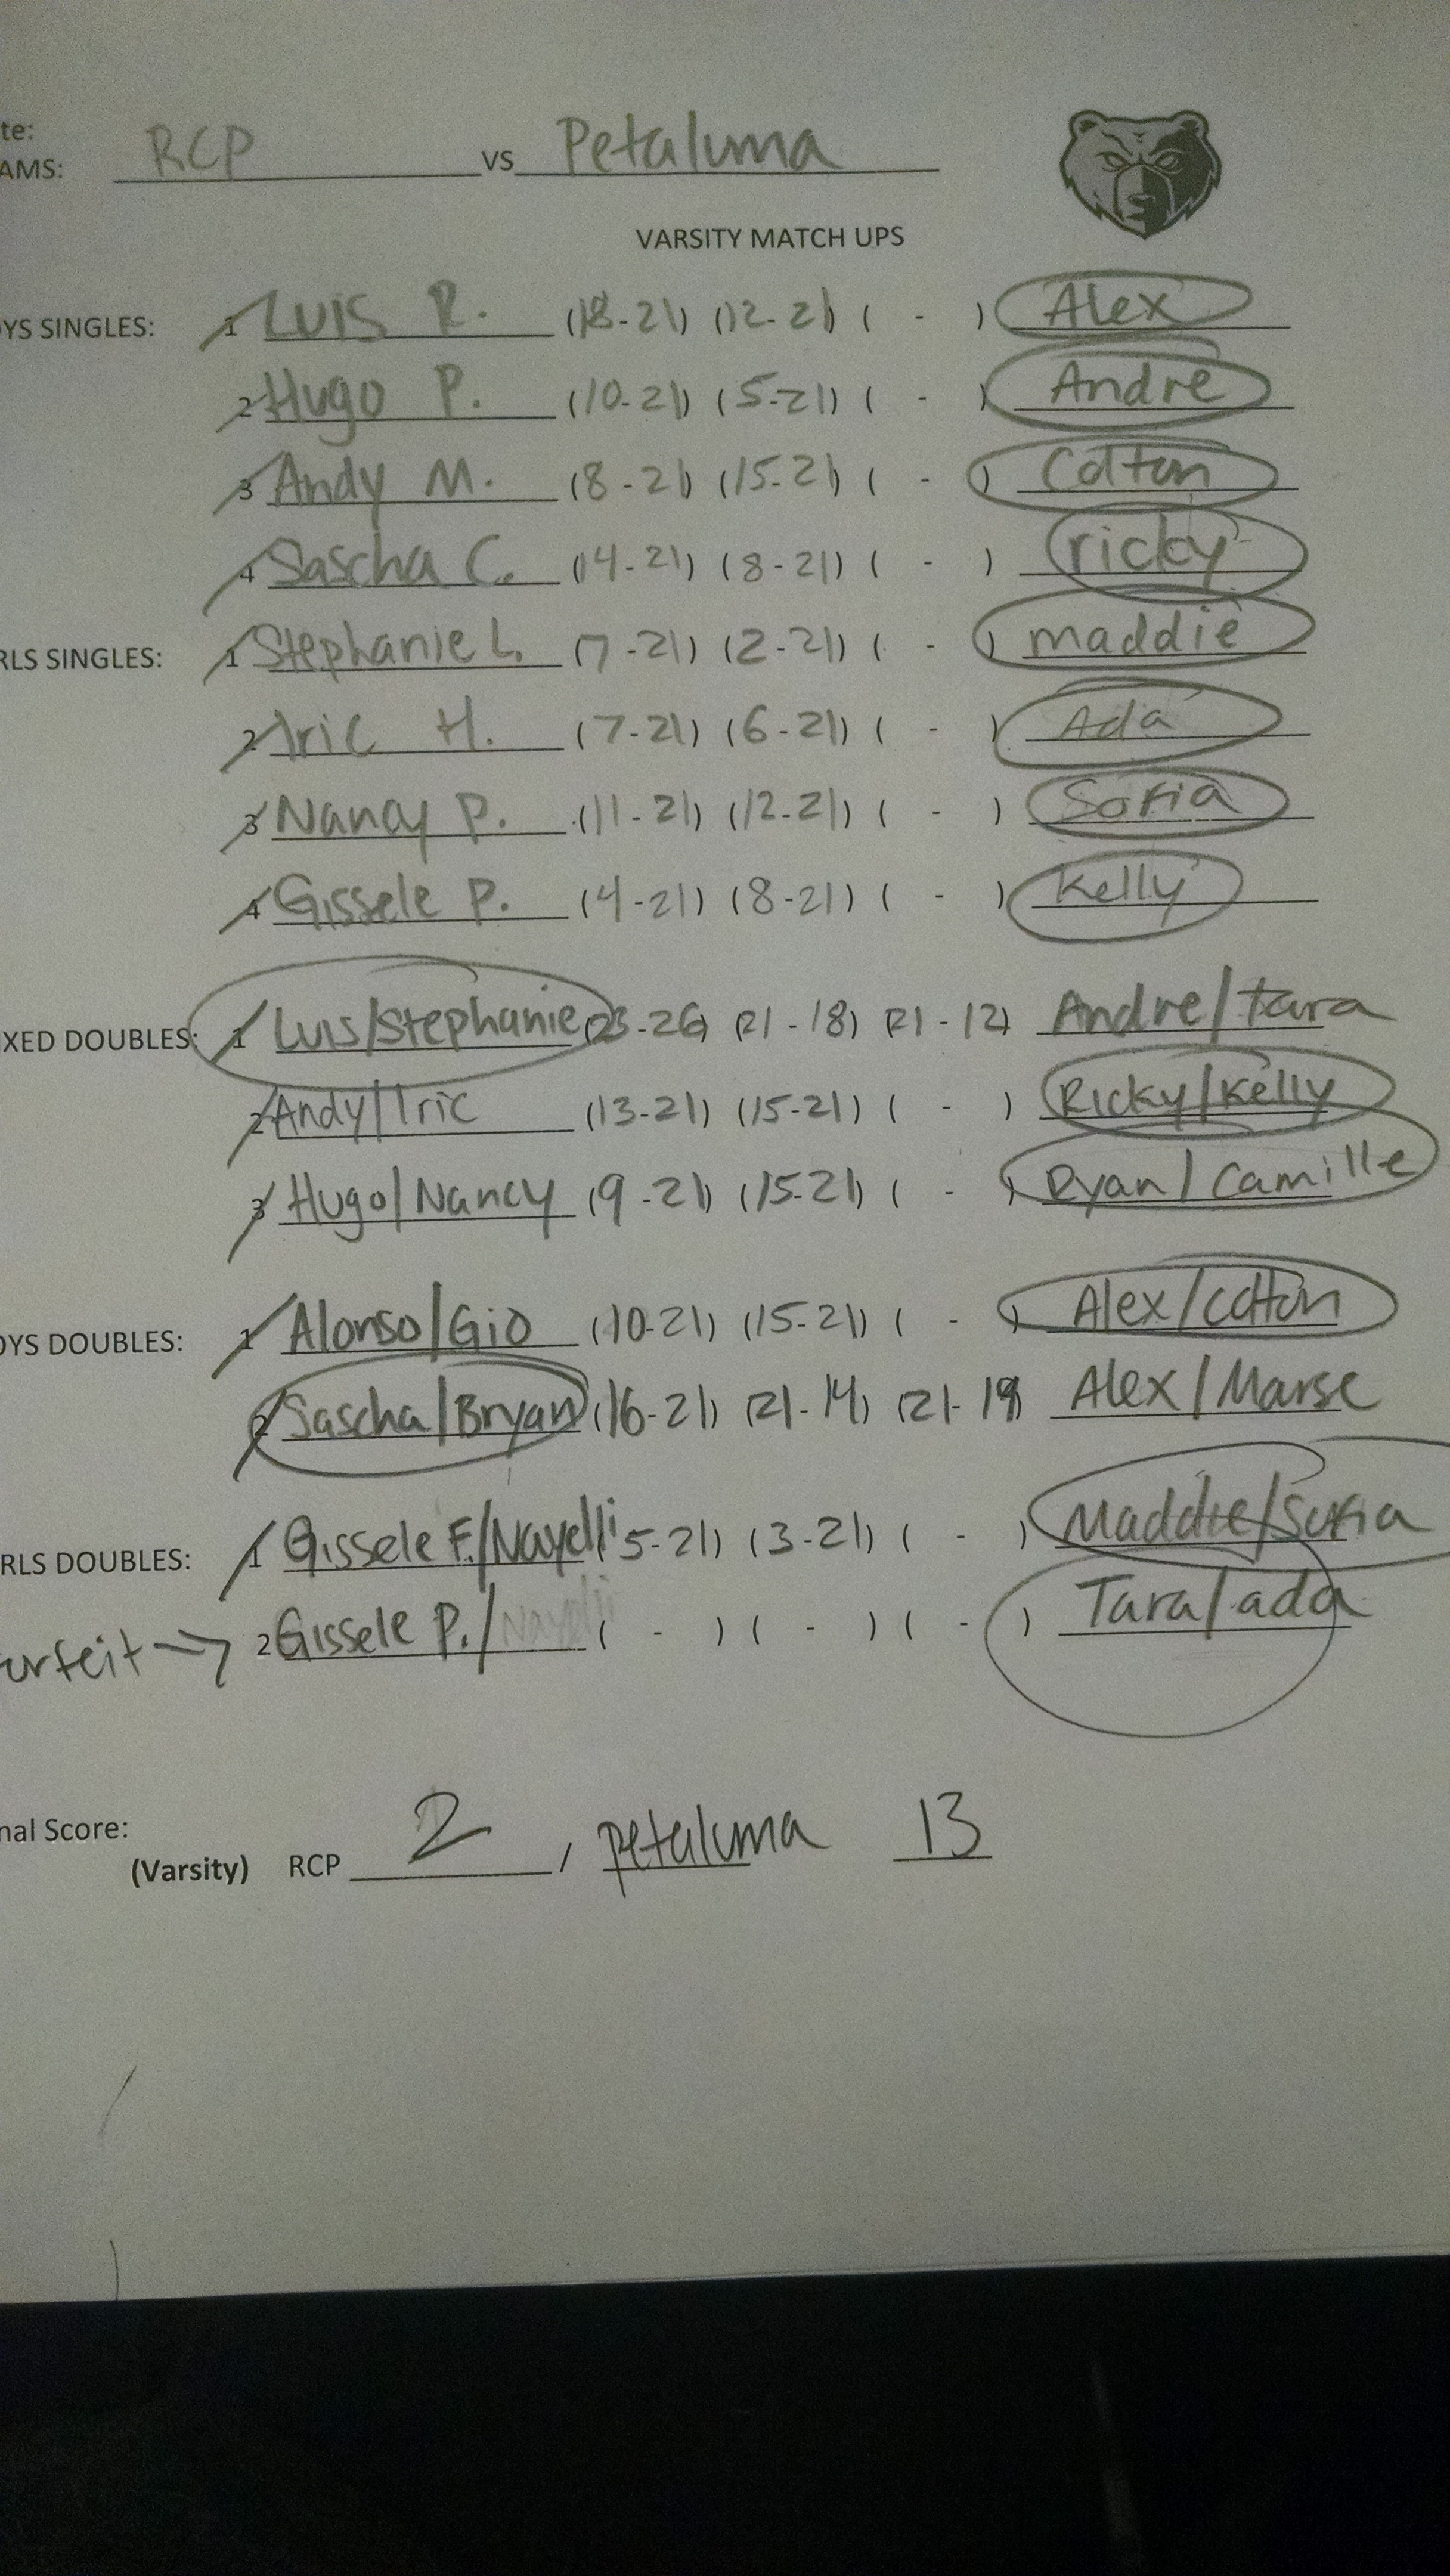 te:
AMS: RCP vs Petaluma
VARSITY MATCH UPS
YS SINGLES: 1 Luis R. (18-21) (12-21) ( - ) Alex
2 Hugo P. (10-21) (5-21) ( - ) Andre
3 Andy M. (8-21) (15-21) ( - ) Colton
4 Sascha C. (14-21) (8-21) ( - ) ricky
RLS SINGLES: 1 Stephanie L. (7-21) (2-21) ( - ) maddie
2 Iric H. (7-21) (6-21) ( - ) Ada
3 Nancy P. (11-21) (12-21) ( - ) Sofia
4 Gissele P. (4-21) (8-21) ( - ) Kelly
XED DOUBLES: 1 Luis/Stephanie (23-26) (21-18) (21-12) Andre/Tara
2 Andy/Iric (13-21) (15-21) ( - ) Ricky/Kelly
3 Hugo/Nancy (9-21) (15-21) ( - ) Ryan/Camille
OYS DOUBLES: 1 Alonso/Gio (10-21) (15-21) ( - ) Alex/Colton
2 Sascha/Bryan (16-21) (21-14) (21-19) Alex/Marse
RLS DOUBLES: 1 Gissele F./Nayelli (5-21) (3-21) ( - ) Maddie/Sofia
orfeit → 2 Gissele P./Nayelli ( - ) ( - ) ( - ) Tara/ada
nal Score:
(Varsity) RCP 2, petaluma 13